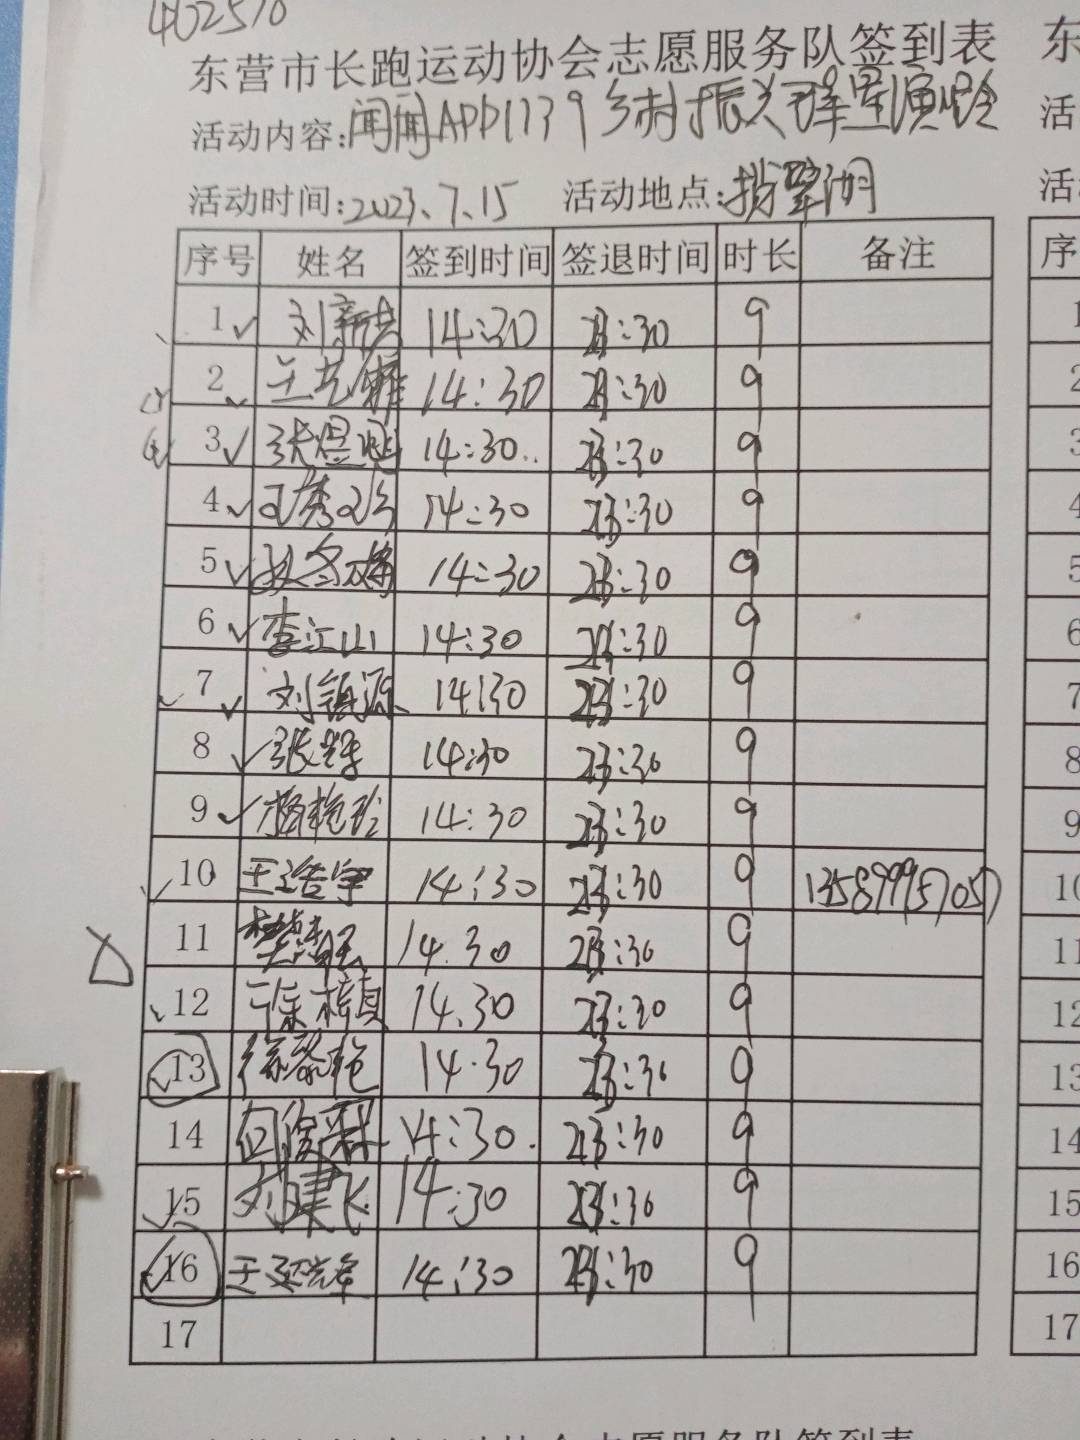 402510
东营市长跑运动协会志愿服务队签到表
活动内容:闻闻APP1139乡村振兴群星演唱会
活动时间:2023.7.15 活动地点:揽翠湖
序号 姓名 签到时间 签退时间 时长 备注
1 刘新 14:30 23:30 9
2 王艺雅 14:30 23:30 9
3 张煜 14:30 23:30 9
4 王秀 14:30 23:30 9
5 14:30 23:30 9
6 李江山 14:30 23:30 9
7 刘镇源 14:30 23:30 9
8 张 14:30 23:30 9
9 杨艳玲 14:30 23:30 9
10 王浩宇 14:30 23:30 9
11 14.30 23:30 9
12 徐梓真 14.30 23:30 9
13 徐 14.30 23:30 9
14 向俊霖 14:30 23:30 9
15 刘建飞 14:30 23:30 9
16 王 14:30 23:30 9
17
东
活
活
序
1
2
3
4
5
6
7
8
9
10
11
12
13
14
15
16
17